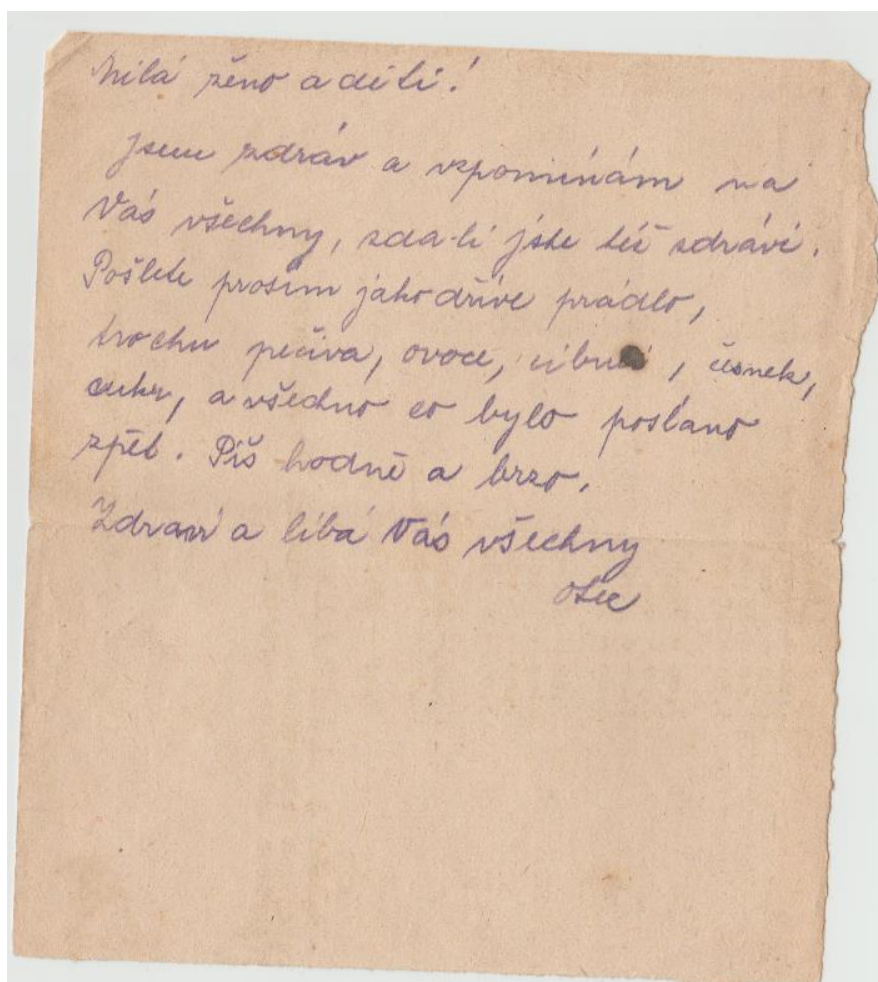 Milá ženo a děti!
Jsem zdráv a vzpomínám na
Vás všechny, zda-li jste též zdrávi.
Pošlete prosím jako dříve prádlo,
trochu pečiva, ovoce, , česnek,
cukr, a všechno co bylo posláno
zpět. Piš hodně a brzo.
Zdraví a líbá Vás všechny
otec